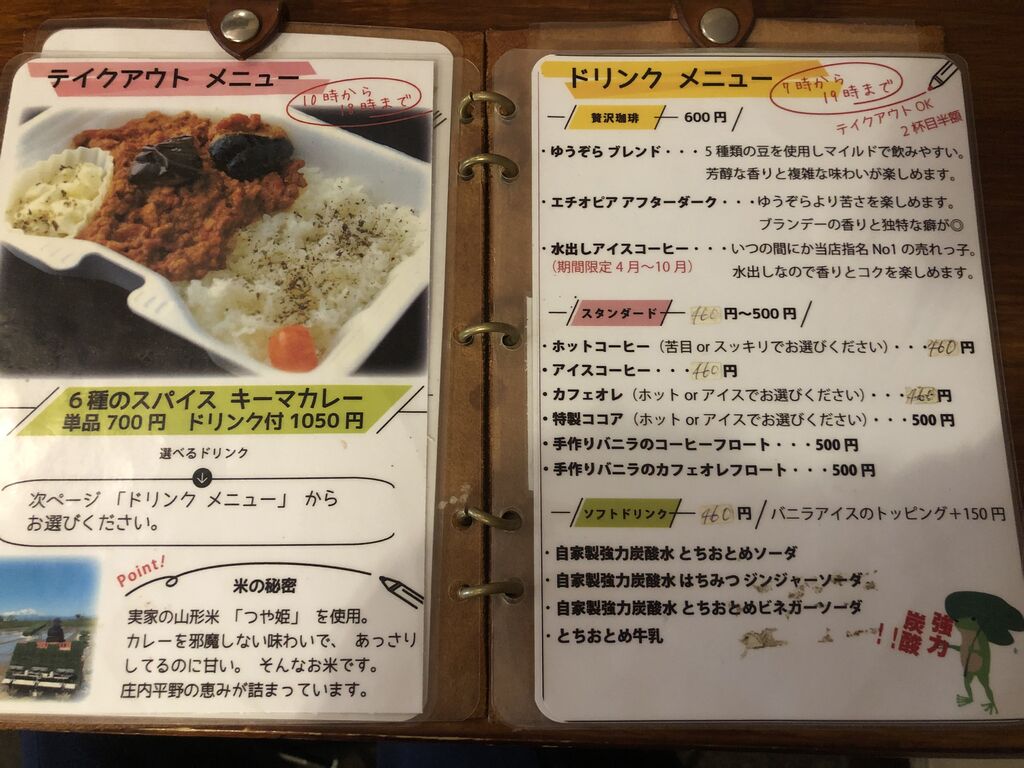 テイクアウト メニュー
10時から
18時まで
6種のスパイス キーマカレー
単品700円 ドリンク付1050円
選べるドリンク
次ページ「ドリンク メニュー」から
お選びください。
Point!
米の秘密
実家の山形米「つや姫」を使用。
カレーを邪魔しない味わいで、あっさり
してるのに甘い。そんなお米です。
庄内平野の恵みが詰まっています。
ドリンク メニュー
7時から
19時まで
テイクアウトOK
2杯目半額
贅沢珈琲 600円
・ゆうぞら ブレンド・・・5種類の豆を使用しマイルドで飲みやすい。
芳醇な香りと複雑な味わいが楽しめます。
・エチオピア アフターダーク・・・ゆうぞらより苦さを楽しめます。
ブランデーの香りと独特な癖が◎
・水出しアイスコーヒー・・・いつの間にか当店指名No1の売れっ子。
(期間限定4月～10月) 水出しなので香りとコクを楽しめます。
スタンダード 460円～500円
・ホットコーヒー(苦目 or スッキリでお選びください)・・・460円
・アイスコーヒー・・・460円
・カフェオレ(ホット or アイスでお選びください)・・・460円
・特製ココア(ホット or アイスでお選びください)・・・500円
・手作りバニラのコーヒーフロート・・・500円
・手作りバニラのカフェオレフロート・・・500円
ソフトドリンク 460円 / バニラアイスのトッピング+150円
・自家製強力炭酸水 とちおとめソーダ
・自家製強力炭酸水 はちみつ ジンジャーソーダ
・自家製強力炭酸水 とちおとめビネガーソーダ
・とちおとめ牛乳
強力
炭酸!!